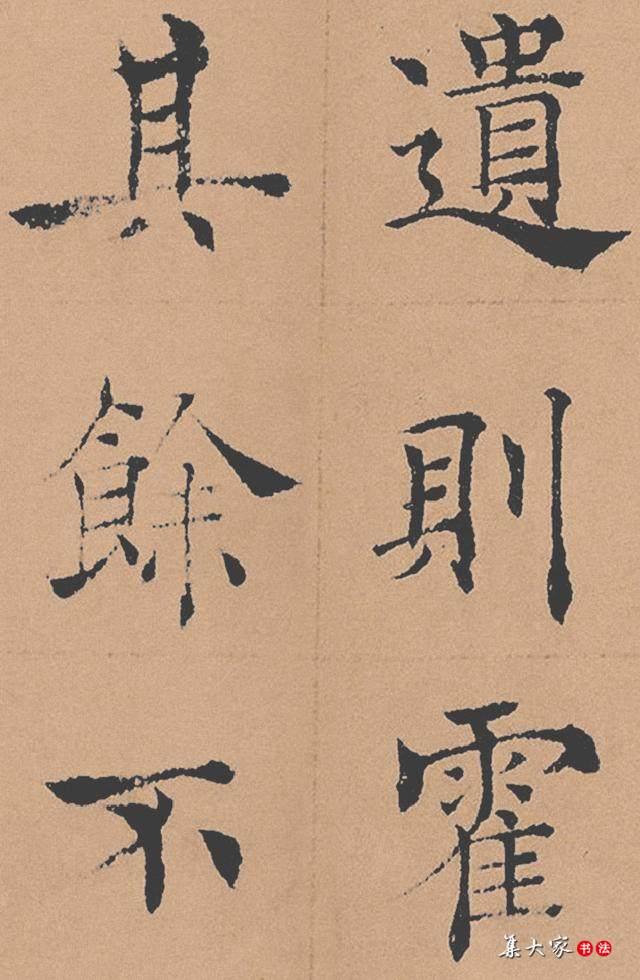 遺則霍
其餘不
集大家书法